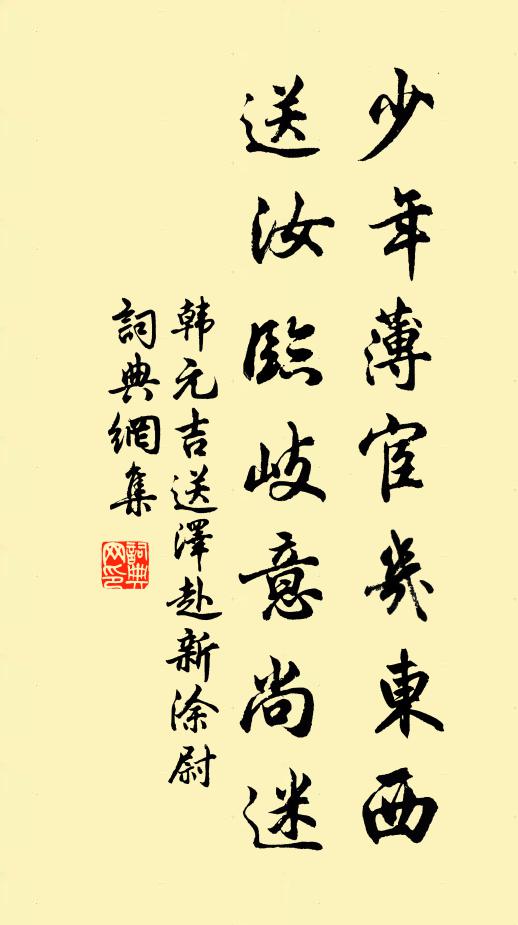 少年薄宦幾東西
送汝臨岐意尚迷
韩元吉送澤赴新淦尉
詞典網集
詞典網印